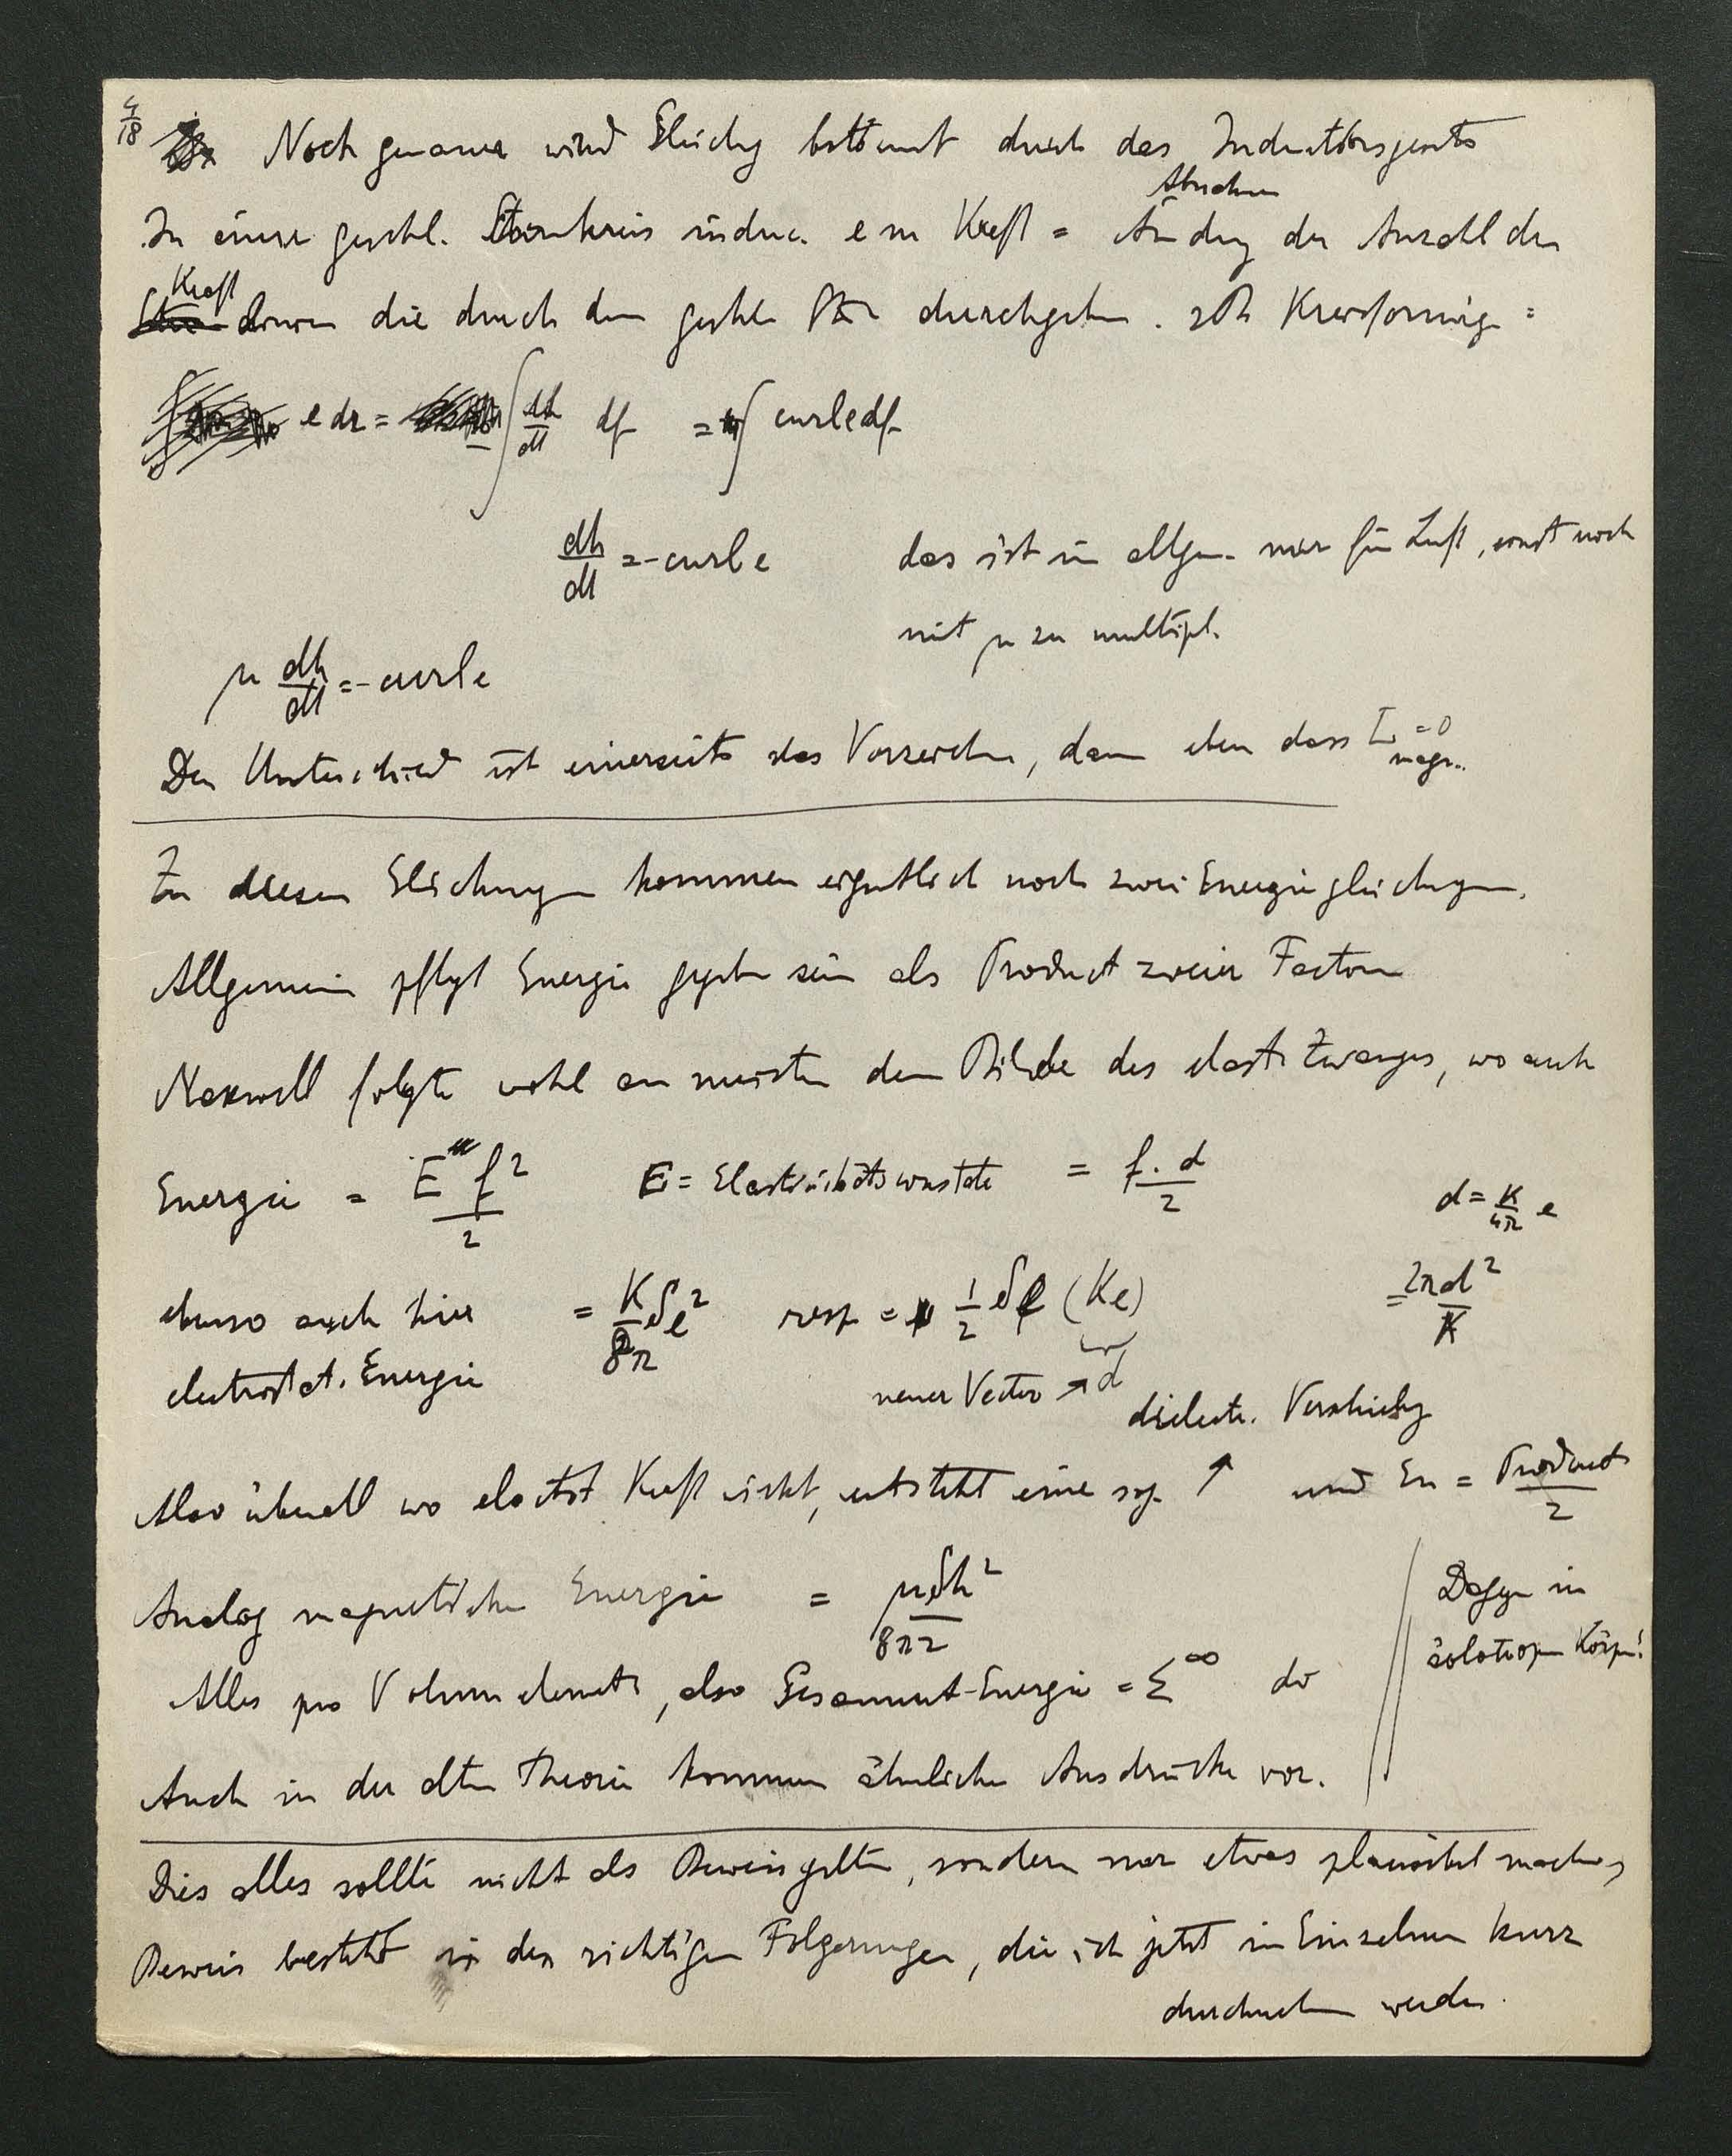 4/18
Noch genauer wird Gleichg bestimmt durch das Inductionsgesetz
Abnahme
In einem geschl. Stromkreis induc. em Kraft = Ändrg der Anzahl der
Kraft
linien die durch den geschl. durchgehen. Kreisförmig =
e dr = - ∫ dh/dt df = ∫ curl e df
dh/dt = - curl e das ist im allgem. nur für Luft, sonst noch
mit μ zu multipl.
μ dh/dt = - curl e
Der Unterschied ist einerseits das Vorzeichen, dann eben dass I magn. = 0
Zu diesen Gleichungen kommen eigentlich noch zwei Energiegleichgen.
Allgemein pflegt Energie gegeben sein als Product zweier Factoren
Maxwell folgte wohl am meisten dem Bilde des elast. Zwanges, wo auch
Energie = E f²/2 E = Elasticitätsconstate = f.d/2 d = K/4π e
ebenso auch hier = K/8π δe² resp = 1/2 δe (Ke) = 2πd²/K
electrostat. Energie neuer Vector ↗ d
dielectr. Verschiebg
Also überall wo electrost Kraft wirkt, entsteht eine sog. ↑ und En = Product/2
Analog magnetische Energie = μδh²/8π2
Dagegen in
äolotropen Körpn!
Alles pro Volumelement, also Gesammt-Energie = Σ^∞ do
Auch in der alten Theorie kommen ähnliche Ausdrücke vor.
Dies alles sollte nicht als Beweis gelten, sondern nur etwas plausibel machen,
Beweis besteht in den richtigen Folgerungen, die ich jetzt im Einzelnen kurz
durchnehmen werde.